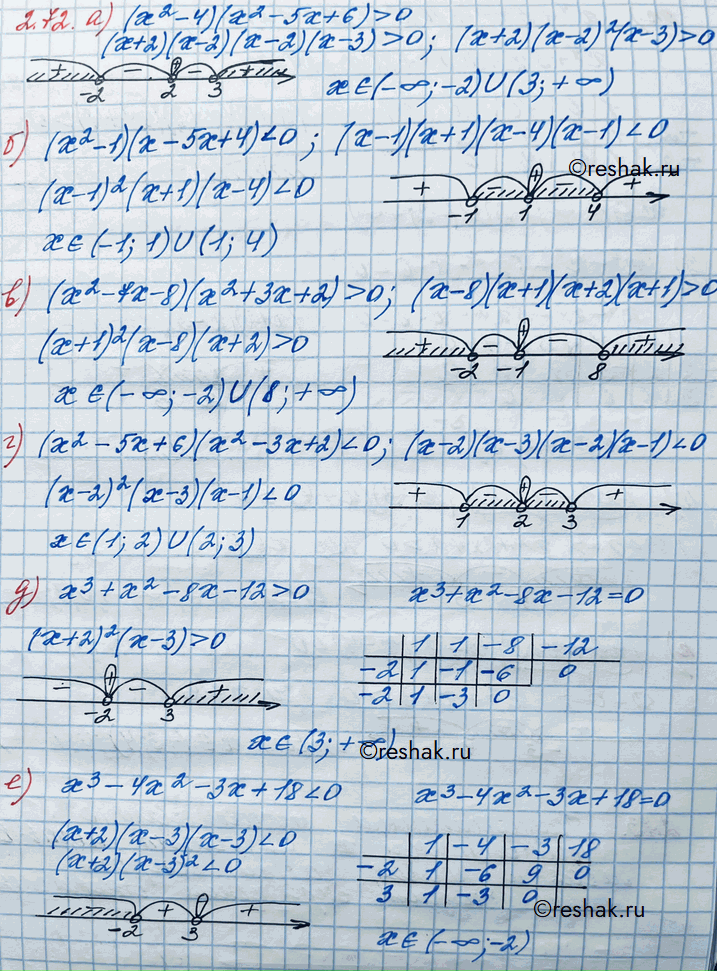 2.72. а) (x² - 4)(x² - 5x + 6) > 0
(x+2)(x-2)(x-2)(x-3) > 0; (x+2)(x-2)²(x-3) > 0
+ - + - +
-2 2 3
x ∈ (-∞; -2) ∪ (3; +∞)
б) (x² - 1)(x - 5x + 4) < 0; (x-1)(x+1)(x-4)(x-1) < 0
©reshak.ru
(x-1)²(x+1)(x-4) < 0
+ - + - +
-1 1 4
x ∈ (-1; 1) ∪ (1; 4)
в) (x² - 7x - 8)(x² + 3x + 2) > 0; (x-8)(x+1)(x+2)(x+1) > 0
(x+1)²(x-8)(x+2) > 0
+ - + - +
-2 -1 8
x ∈ (-∞; -2) ∪ (8; +∞)
г) (x² - 5x + 6)(x² - 3x + 2) < 0; (x-2)(x-3)(x-2)(x-1) < 0
(x-2)²(x-3)(x-1) < 0
+ - + - +
1 2 3
x ∈ (1; 2) ∪ (2; 3)
д) x³ + x² - 8x - 12 > 0 x³ + x² - 8x - 12 = 0
(x+2)²(x-3) > 0
1 1 -8 -12
-2 1 -1 -6 0
-2 1 -3 0
- + - +
-2 3
x ∈ (3; +∞)
©reshak.ru
е) x³ - 4x² - 3x + 18 < 0 x³ - 4x² - 3x + 18 = 0
(x+2)(x-3)(x-3) < 0
(x+2)(x-3)² < 0
1 -4 -3 18
-2 1 -6 9 0
3 1 -3 0
- + - +
-2 3
©reshak.ru
x ∈ (-∞; -2)